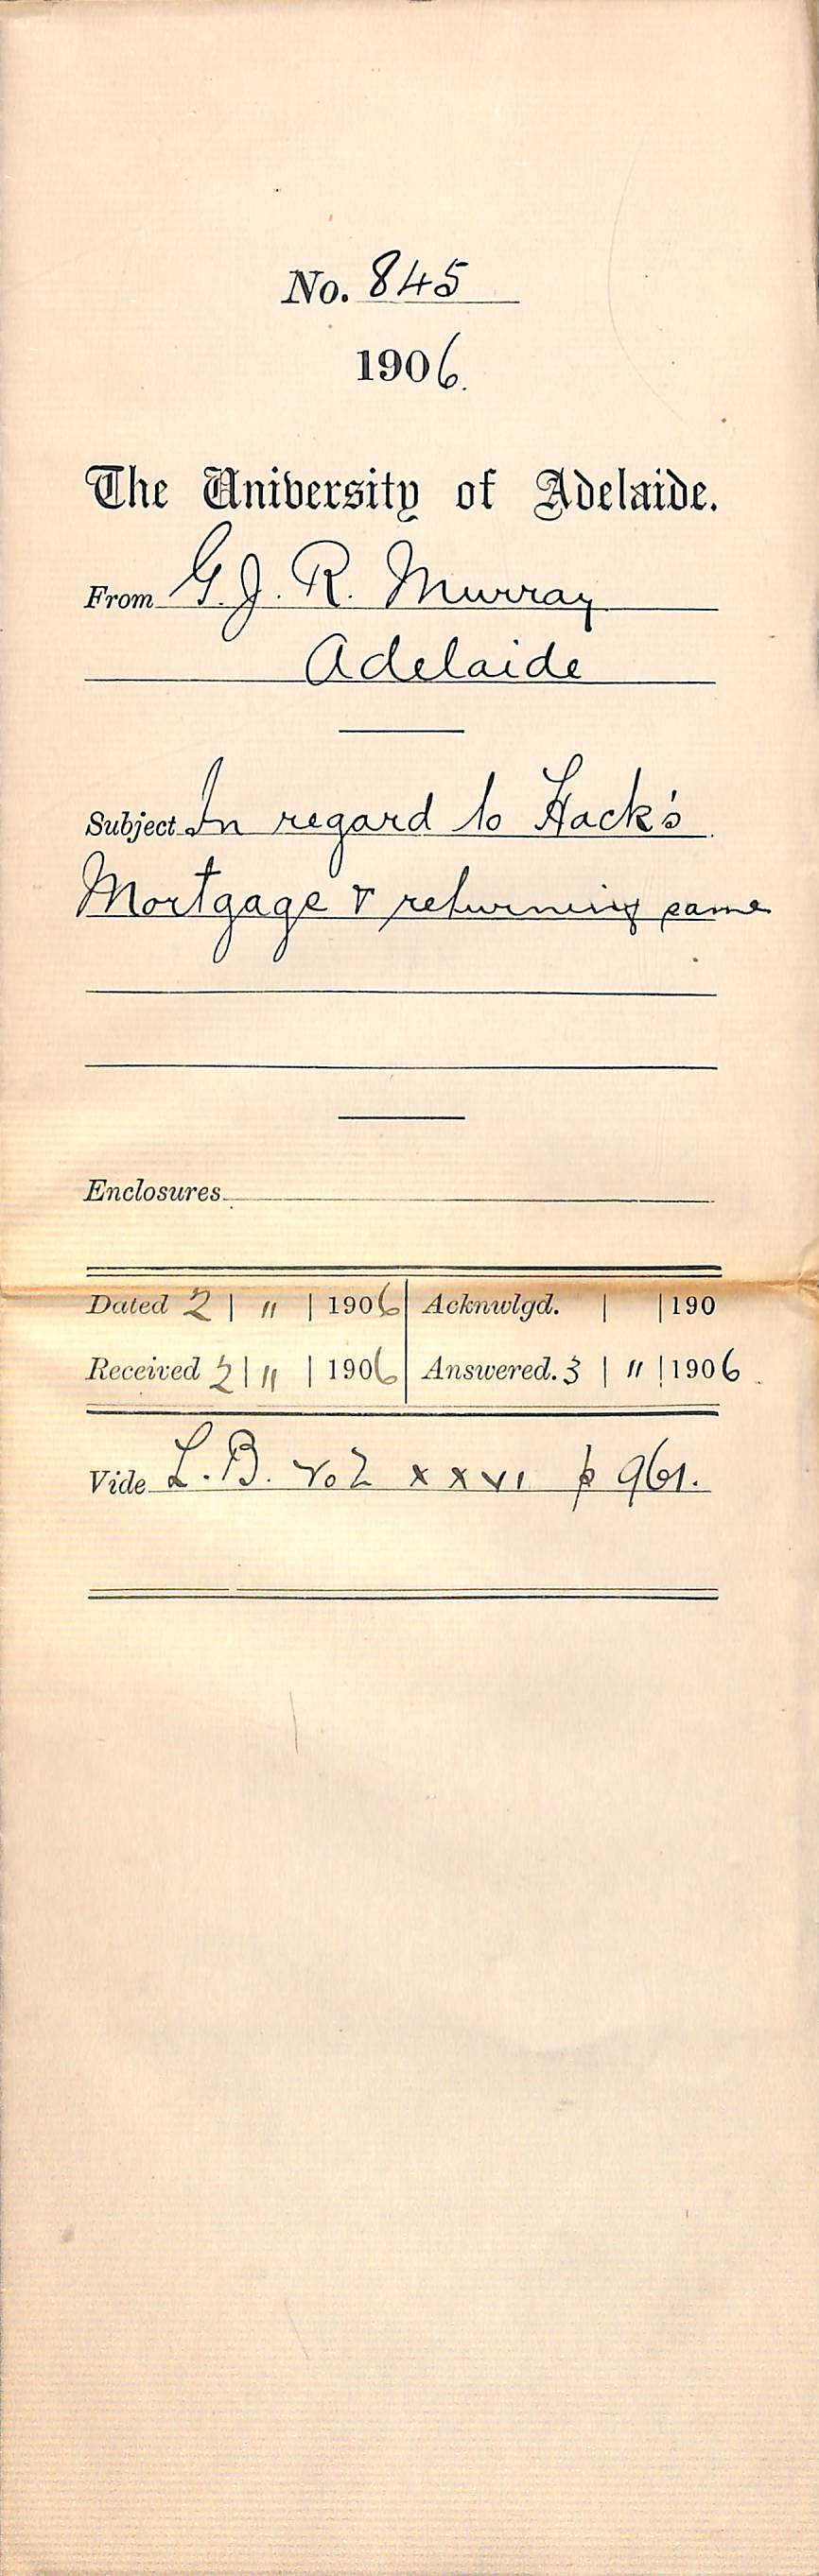 No. 845
1906.
The University of Adelaide.
From G. J. R. Murray
Adelaide
Subject In regard to Hack's
Mortgage & returning same
Enclosures
Dated 2 | 11 | 1906 Acknwlgd. | | 190
Received 2 | 11 | 1906 Answered. 3 | 11 | 1906
Vide L. B. Vol XXVI p 961.